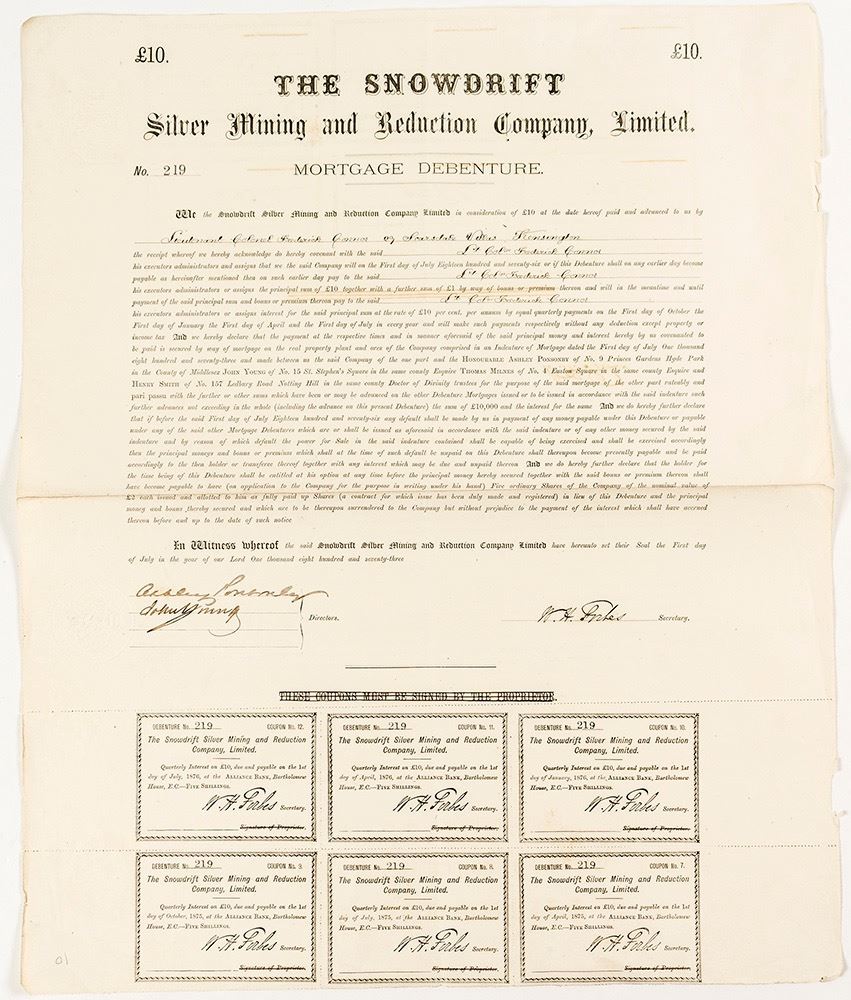 £10. £10.
THE SNOWDRIFT
Silver Mining and Reduction Company, Limited.
No. 219 MORTGAGE DEBENTURE.
We the Snowdrift Silver Mining and Reduction Company Limited in consideration of £10 at the date hereof paid and advanced to us by
Lieutenant Colonel Frederick Connor of Scarsdale Villas Kensington
the receipt whereof we hereby acknowledge do hereby covenant with the said Lt Coln Frederick Connor
his executors administrators and assigns that we the said Company will on the First day of July Eighteen hundred and seventy-six or if this Debenture shall on any earlier day become
payable as hereinafter mentioned then on such earlier day pay to the said Lt Coln Frederick Connor
his executors administrators or assigns the principal sum of £10 together with a further sum of £1 by way of bonus or premium thereon and will in the meantime and until
payment of the said principal sum and bonus or premium thereon pay to the said Lt Coln Frederick Connor
his executors administrators or assigns interest for the said principal sum at the rate of £10 per cent. per annum by equal quarterly payments on the First day of October the
First day of January the First day of April and the First day of July in every year and will make such payments respectively without any deduction except property or
income tax And we hereby declare that the payment at the respective times and in manner aforesaid of the said principal money and interest hereby by us covenanted to
be paid is secured by way of mortgage on the real property and plant and ores of the Company comprised in an Indenture of Mortgage dated the First day of July One thousand
eight hundred and seventy-three and made between us the said Company of the one part and the HONOURABLE ASHLEY PONSONBY of No. 9 Princes Gardens Hyde Park
in the County of Middlesex JOHN YOUNG of No. 15 St. Stephen's Square in the same county Esquire THOMAS MILNES of No. 4 Euston Square in the same county Esquire and
HENRY SMITH of No. 157 Ledbury Road Notting Hill in the same county Doctor of Divinity trustees for the purpose of the said mortgage of the other part rateably and
pari passu with the further or other sums which have been or may be advanced on the other Debenture Mortgages issued or to be issued in accordance with the said indenture such
further advances not exceeding in the whole (including the advance on this present Debenture) the sum of £10,000 and the interest for the same And we do hereby further declare
that if before the said First day of July Eighteen hundred and seventy-six any default shall be made by us in payment of any money payable under this Debenture or payable
under any of the said other Mortgage Debentures which are or shall be issued as aforesaid in accordance with the said indenture or of any other money secured by the said
indenture and by reason of which default the power for Sale in the said indenture contained shall be capable of being exercised and shall be exercised accordingly
then the principal moneys and bonus or premiums which shall at the time of such default be unpaid on this Debenture shall thereupon become presently payable and be paid
accordingly to the then holder or transferee thereof together with any interest which may be due and unpaid thereon And we do hereby further declare that the holder for
the time being of this Debenture shall be entitled at his option at any time before the principal money hereby secured together with the said bonus or premium thereon shall
have become payable to have (on application to the Company for the purpose in writing under his hand) Five ordinary Shares of the Company of the nominal value of
£2 each issued and allotted to him as fully paid up Shares (a contract for which issue has been duly made and registered) in lieu of this Debenture and the principal
money and bonus thereby secured and which are to be thereupon surrendered to the Company but without prejudice to the payment of the interest which shall have accrued
thereon before and up to the date of such notice
In Witness whereof the said Snowdrift Silver Mining and Reduction Company Limited have hereunto set their Seal the First day
of July in the year of our Lord One thousand eight hundred and seventy-three
Ashley Ponsonby
John Young Directors. W. H. Forbes Secretary.
THESE COUPONS MUST BE SIGNED BY THE PROPRIETOR.
DEBENTURE No. 219 COUPON No. 12.
The Snowdrift Silver Mining and Reduction
Company, Limited.
Quarterly Interest on £10, due and payable on the 1st
day of July, 1876, at the ALLIANCE BANK, Bartholomew
House, E.C.—FIVE SHILLINGS.
W. H. Forbes Secretary.
Signature of Proprietor.
DEBENTURE No. 219 COUPON No. 11.
The Snowdrift Silver Mining and Reduction
Company, Limited.
Quarterly Interest on £10, due and payable on the 1st
day of April, 1876, at the ALLIANCE BANK, Bartholomew
House, E.C.—FIVE SHILLINGS.
W. H. Forbes Secretary.
Signature of Proprietor.
DEBENTURE No. 219 COUPON No. 10.
The Snowdrift Silver Mining and Reduction
Company, Limited.
Quarterly Interest on £10, due and payable on the 1st
day of January, 1876, at the ALLIANCE BANK, Bartholomew
House, E.C.—FIVE SHILLINGS.
W. H. Forbes Secretary.
Signature of Proprietor.
DEBENTURE No. 219 COUPON No. 9.
The Snowdrift Silver Mining and Reduction
Company, Limited.
Quarterly Interest on £10, due and payable on the 1st
day of October, 1875, at the ALLIANCE BANK, Bartholomew
House, E.C.—FIVE SHILLINGS.
W. H. Forbes Secretary.
Signature of Proprietor.
DEBENTURE No. 219 COUPON No. 8.
The Snowdrift Silver Mining and Reduction
Company, Limited.
Quarterly Interest on £10, due and payable on the 1st
day of July, 1875, at the ALLIANCE BANK, Bartholomew
House, E.C.—FIVE SHILLINGS.
W. H. Forbes Secretary.
Signature of Proprietor.
DEBENTURE No. 219 COUPON No. 7.
The Snowdrift Silver Mining and Reduction
Company, Limited.
Quarterly Interest on £10, due and payable on the 1st
day of April, 1875, at the ALLIANCE BANK, Bartholomew
House, E.C.—FIVE SHILLINGS.
W. H. Forbes Secretary.
Signature of Proprietor.